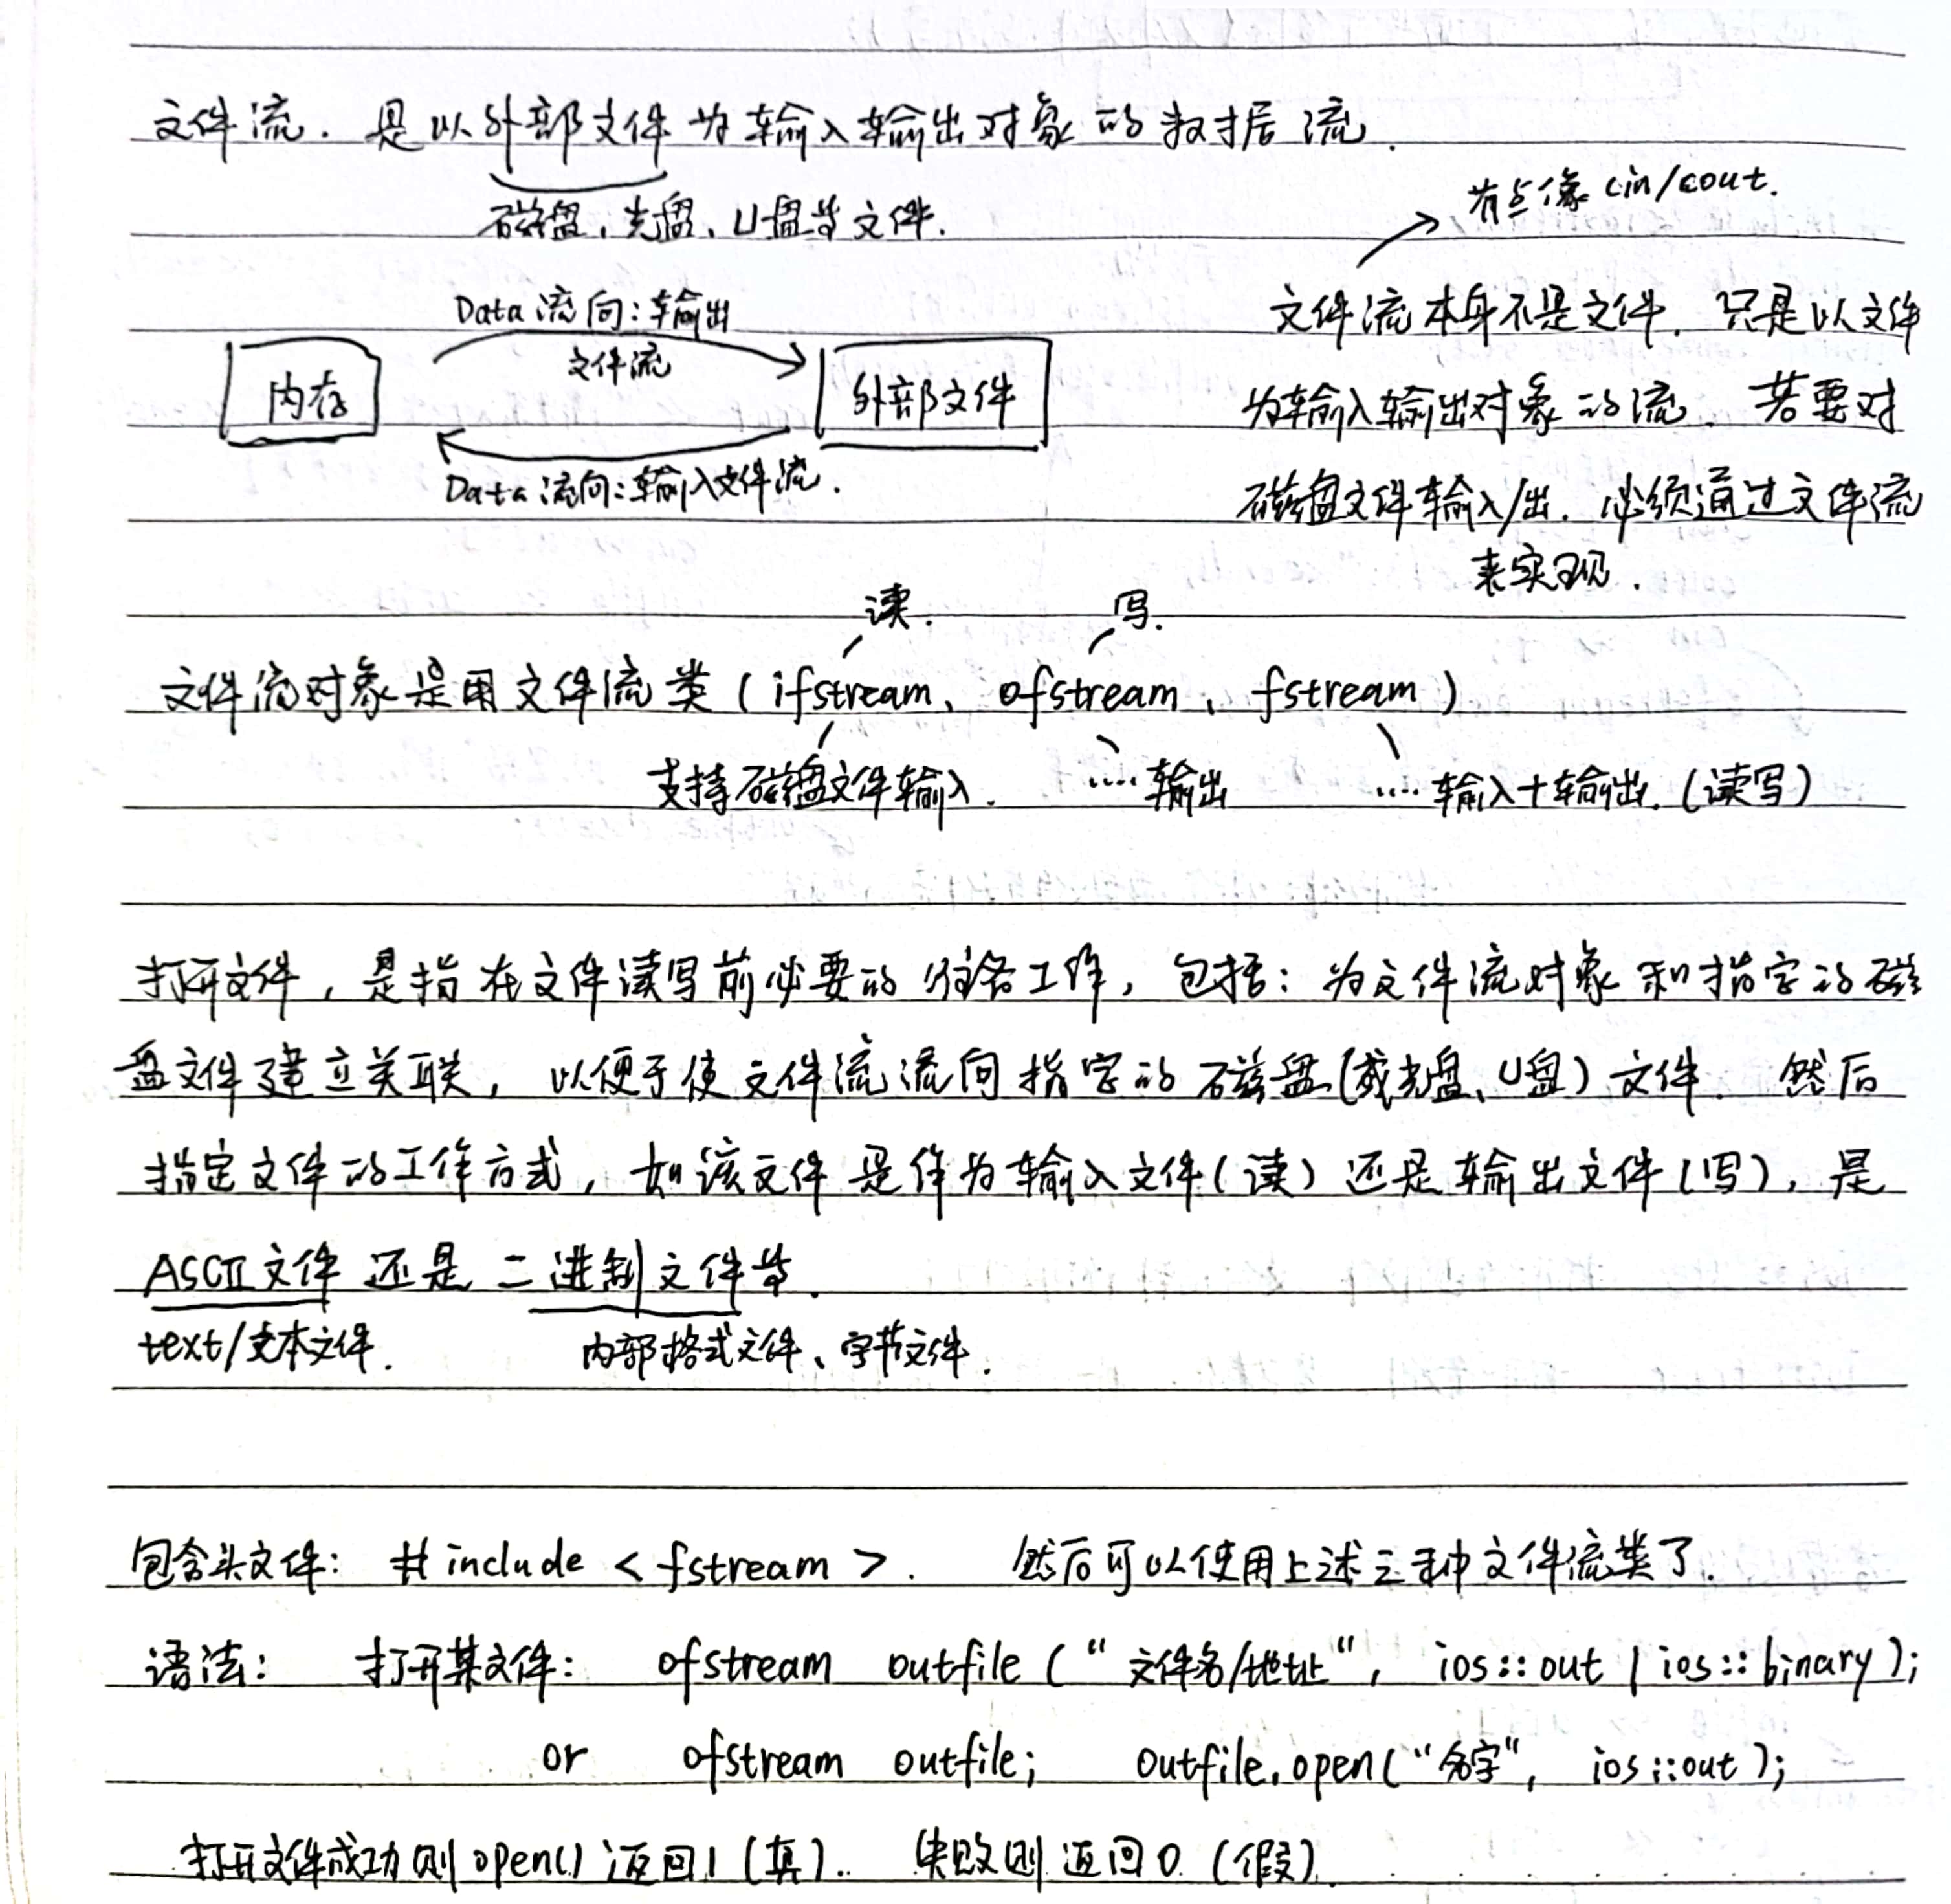 文件流.是以外部文件为输入输出对象的数据流.
磁盘、光盘、U盘等文件.
有点像 cin/cout.
Data 流向:输出
文件流
内存
外部文件
Data 流向:输入文件流.
文件流本身不是文件.只是以文件
为输入输出对象的流.若要对
磁盘文件输入/出.必须通过文件流
来实现.
读. 写.
文件流对象是用文件流类(ifstream、ofstream、fstream)
支持磁盘文件输入. ....输出 ....输入+输出.(读写)
打开文件,是指在文件读写前必要的准备工作,包括:为文件流对象和指定的磁
盘文件建立关联,以便于使文件流流向指定的磁盘(或光盘、U盘)文件.然后
指定文件的工作方式,如该文件是作为输入文件(读)还是输出文件(写),是
ASCII文件还是二进制文件等.
text/文本文件. 内部格式文件、字节文件.
包含头文件: #include <fstream>. 然后可以使用上述三种文件流类了.
语法: 打开某文件: ofstream outfile ("文件名/地址", ios::out | ios::binary);
or ofstream outfile; outfile.open("名字", ios::out);
打开文件成功则open()返回1(真).. 失败则返回0.(假)